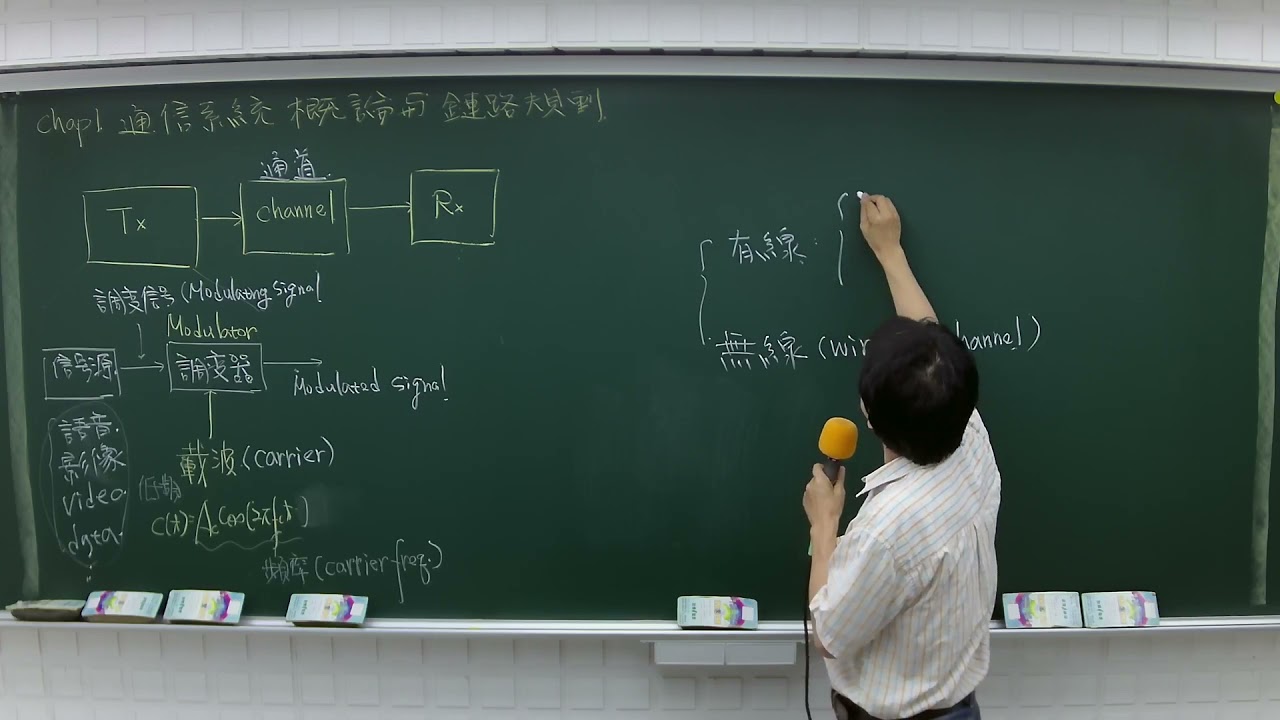 chap1 通信系統概論與鏈路規劃
通道
Tx
channel
Rx
調変信号(Modulating signal
Modulator
信号源
調変器
Modulated signal
載波(carrier)
語音
影像
video
data
c(t)=Ac cos(2πfct)
頻率(carrier freq.)
有線:
無線(wir hannel)